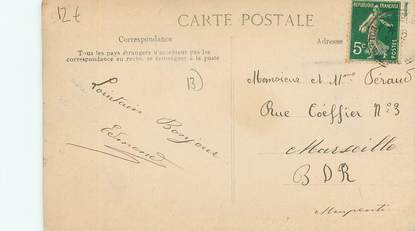 12 €
CARTE POSTALE
RÉPUBLIQUE FRANÇAISE
5c
POSTES
Correspondance
Adresse
Tous les pays étrangers n'acceptent pas les
correspondance au recto, se renseigner à la poste
B
Lointain Bonjour
Edmond
Monsieur et Mme Péraud
Rue Coëffier N° 3
Marseille
B D R